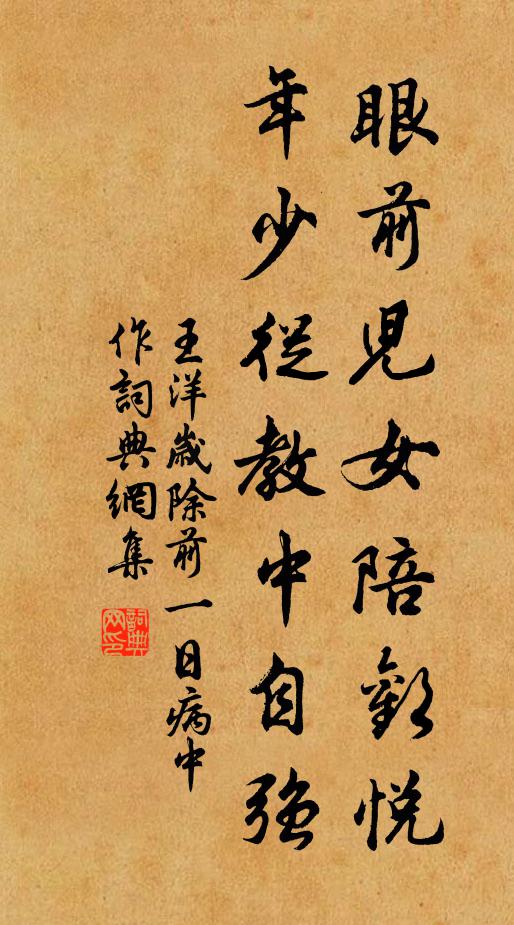 眼前児女陪歡悅
年少從教中自強
王洋歲除前一日病中
作詞典網集
詞典網印